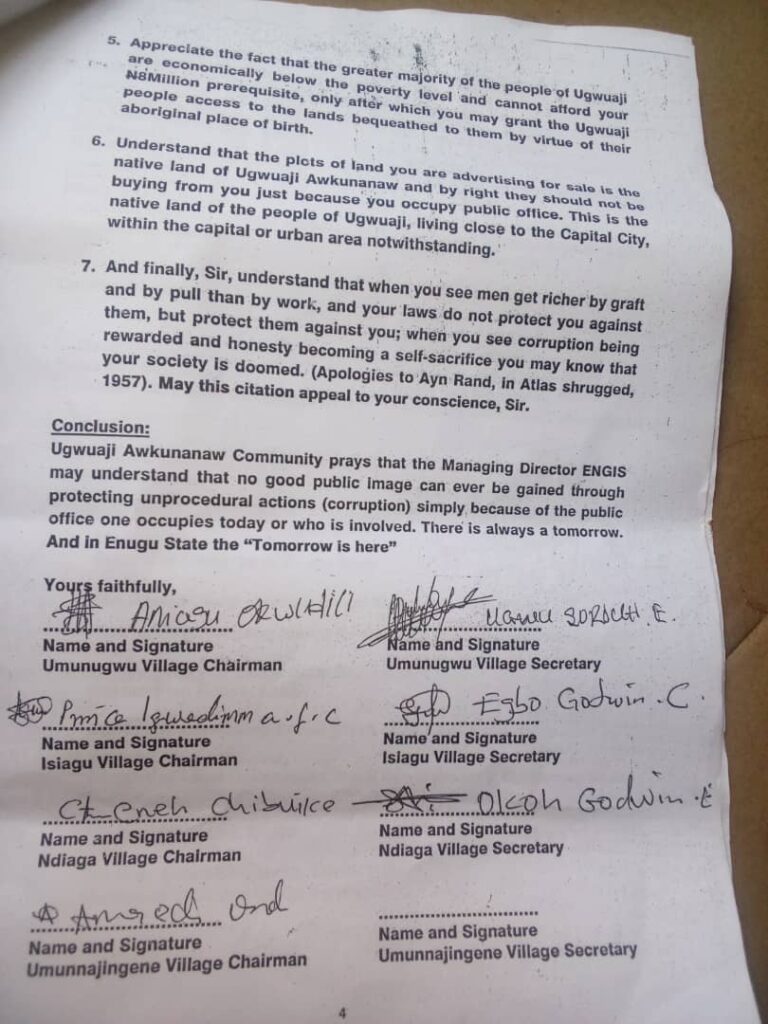 5. Appreciate the fact that the greater majority of the people of Ugwuaji
are economically below the poverty level and cannot afford your
N8Million prerequisite, only after which you may grant the Ugwuaji
people access to the lands bequeathed to them by virtue of their
aboriginal place of birth.
6. Understand that the plots of land you are advertising for sale is the
native land of Ugwuaji Awkunanaw and by right they should not be
buying from you just because you occupy public office. This is the
native land of the people of Ugwuaji, living close to the Capital City,
within the capital or urban area notwithstanding.
7. And finally, Sir, understand that when you see men get richer by graft
and by pull than by work, and your laws do not protect you against
them, but protect them against you; when you see corruption being
rewarded and honesty becoming a self-sacrifice you may know that
your society is doomed. (Apologies to Ayn Rand, in Atlas shrugged,
1957). May this citation appeal to your conscience, Sir.
Conclusion:
Ugwuaji Awkunanaw Community prays that the Managing Director ENGIS
may understand that no good public image can ever be gained through
protecting unprocedural actions (corruption) simply because of the public
office one occupies today or who is involved. There is always a tomorrow.
And in Enugu State the “Tomorrow is here”
Yours faithfully,
Aniagu
Name and Signature Name and Signature
Umunugwu Village Chairman Umunugwu Village Secretary
Egbo Godwin .C.
Name and Signature Name and Signature
Isiagu Village Chairman Isiagu Village Secretary
Eneh Okoh Godwin .E
Name and Signature Name and Signature
Ndiaga Village Chairman Ndiaga Village Secretary
Name and Signature Name and Signature
Umunnajingene Village Chairman Umunnajingene Village Secretary
4